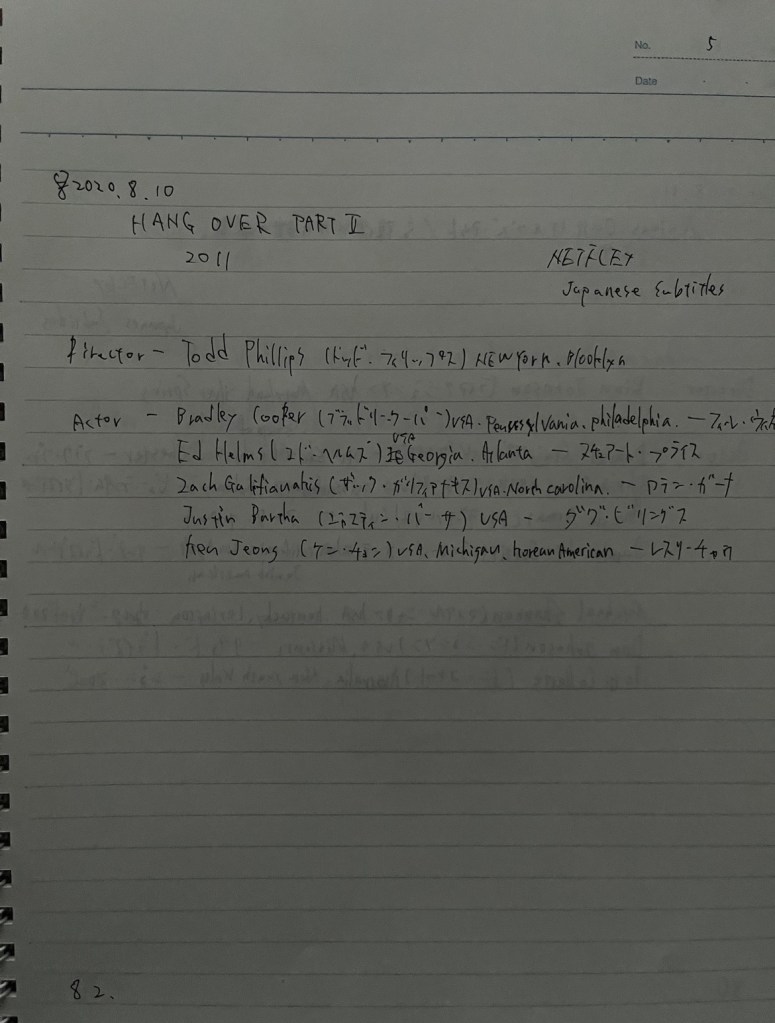 No. 5
Date
2020.8.10
HANG OVER PART II
2011 NETFLEX
Japanese Subtitles
Director - Todd Phillips (トッド・フィリップス) NEW York. Blooklyn
Actor - Bradley Cooper (ブラッドリー・クーパー) USA. Pennsylvania. philadelphia. - フィル・
USA
Ed Helms (エド・ヘルムズ) Georgia. Atlanta - スチュアート・プライス
Zach Galifianakis (ザック・ガリフィアナキス) USA. North carolina. - アラン・ガーナ
Justin Bartha (ジャスティン・バーサ) USA - ダグ・ビリングス
Ken Jeong (ケン・チョン) USA. Michigan. korean American - レスリー・チャウ
82.